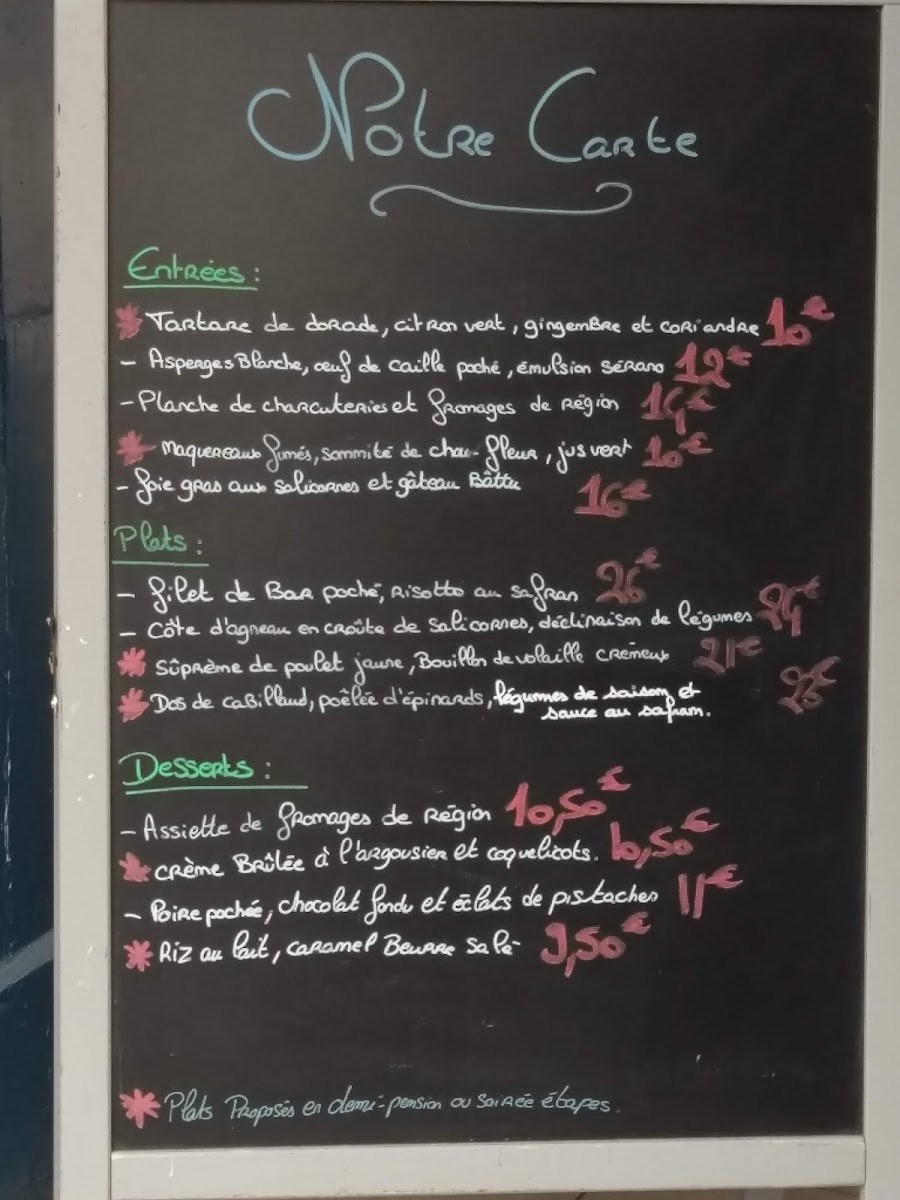 Notre Carte
Entrées :
* Tartare de dorade, citron vert, gingembre et coriandre 10€
- Asperges Blanche, œuf de caille poché, émulsion sérano 12€
- Planche de charcuteries et fromages de région
* Maquereaux fumés, sommité de chou-fleur, jus vert 10€
- foie gras aux salicornes et gâteau Bâttu 16€
Plats :
- filet de Bar poché, risotto au safran 26€
- Côte d'agneau en croûte de salicornes, déclinaison de légumes 24€
* Sûprème de poulet jaune, Bouillon de volaille crémeux 21€
* Dos de cabillaud, poêlée d'épinards, légumes de saison et
sauce au safran.
Desserts :
- Assiette de fromages de région 10,50€
* crème Brûlée à l'argousier et coquelicots. 10,50€
- Poire pochée, chocolat fondu et éclats de pistaches 11€
* Riz au lait, caramel Beurre salé 9,50€
* Plats Proposés en demi-pension ou soirée étapes.